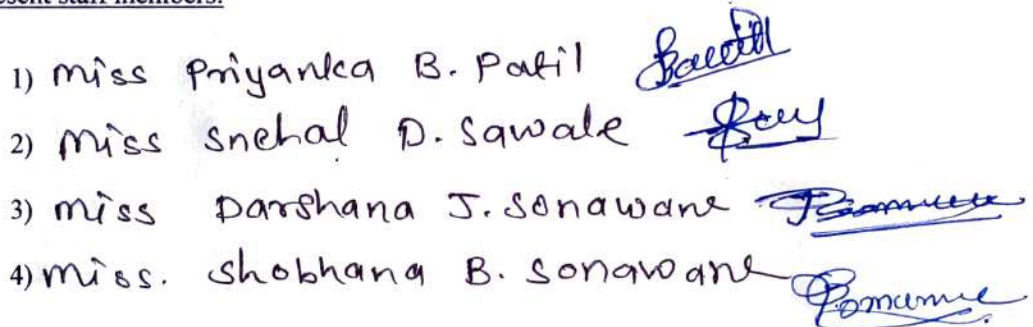 esent staff members:
1) Miss Priyanka B. Patil
2) Miss Snehal D. Sawale
3) Miss Darshana J. Sonawane
4) Miss. Shobhana B. Sonawane